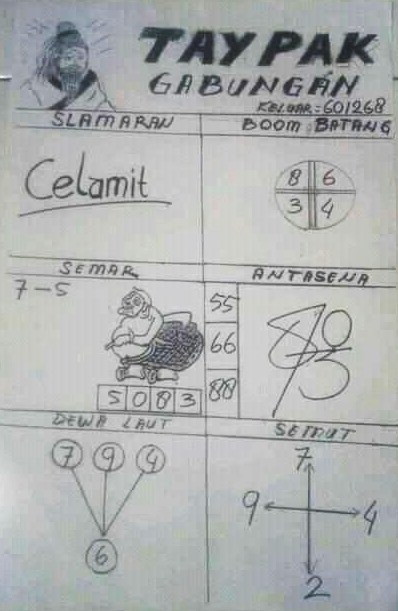 TAY PAK
GABUNGAN
KELUAR: 601268
SLAMARAN
BOOM BATANG
Celamit
8 6
3 4
SEMAR
ANTASENA
7-5
55
66
88
5 0 8 3
DEWA LAUT
SEMUT
7 9 4
6
7
9 4
2